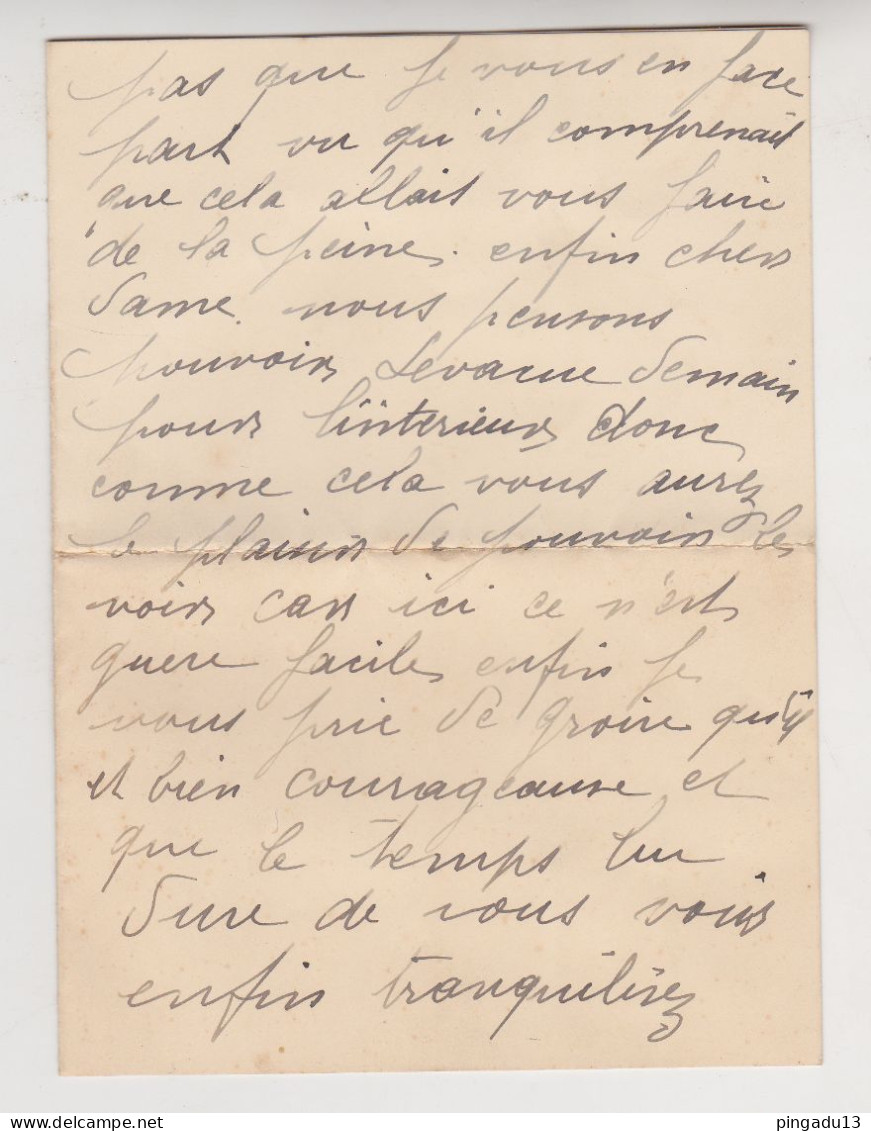 pas que je vous en face
part vu qu'il comprenait
que cela allait vous faire
de la peine. enfin cher
Dame. nous pensons
pouvoir Levacue demain
pour l'interieur donc
comme cela vous aurez
le plaisir de pouvoir les
voir car ici ce n'est
guere facile enfin je
vous prie de groire qu'il
et bien courageause et
que le temps lui
dure de vous voir
enfin tranquilisez
pingadu13